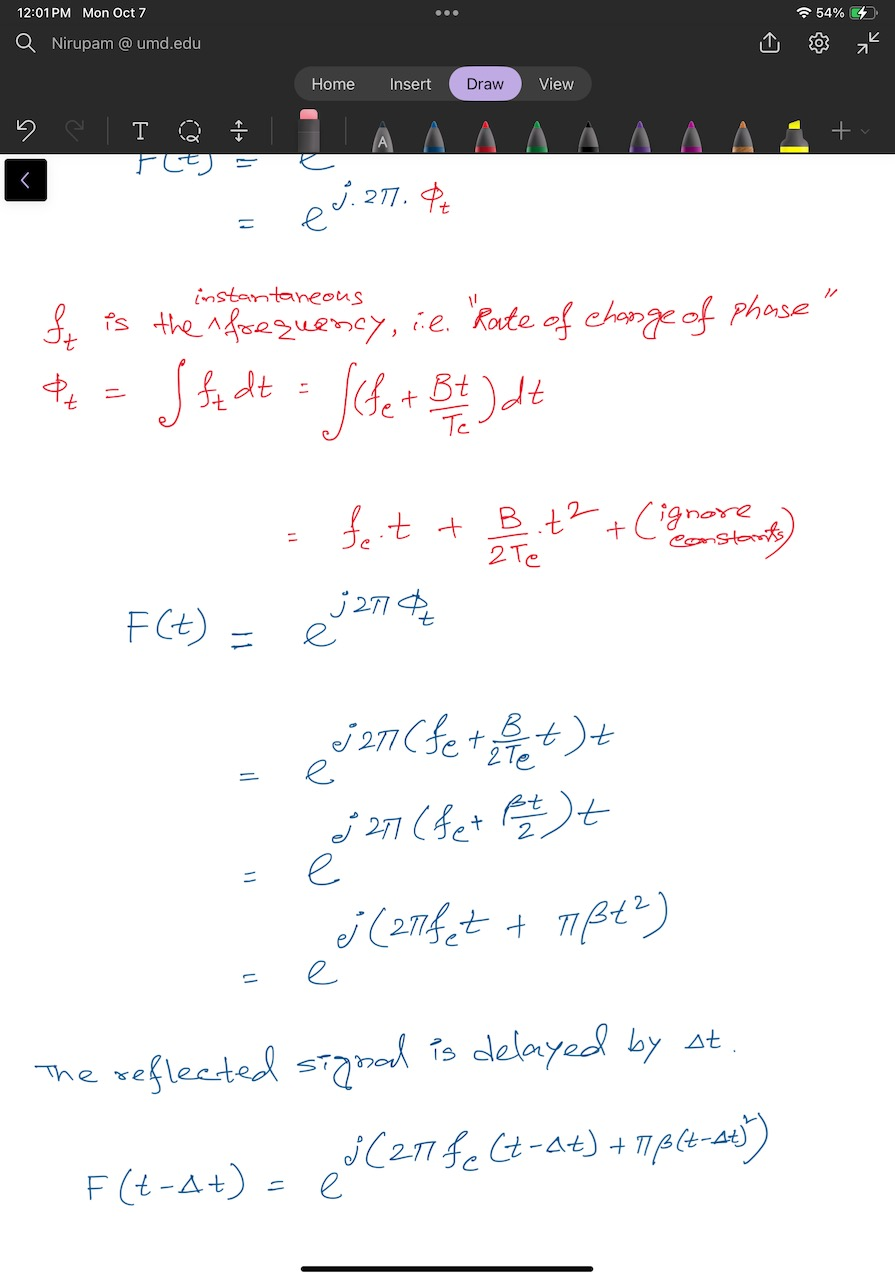 12:01 PM Mon Oct 7 54%
Nirupam @ umd.edu
Home Insert Draw View
T
A
F(t) = e
= e^{j.2π.Φ_t}
instantaneous
f_t is the ^ frequency, i.e. "Rate of change of phase"
Φ_t = ∫f_t dt = ∫(f_c + Bt/T_c) dt
= f_c.t + B/2T_c.t² + (ignore constants)
F(t) = e^{j2πΦ_t}
= e^{j2π(f_c + B/2T_c t)t}
= e^{j2π(f_c + βt/2)t}
= e^{j(2πf_c t + πβt²)}
The reflected signal is delayed by Δt.
F(t-Δt) = e^{j(2πf_c(t-Δt) + πβ(t-Δt)²)}